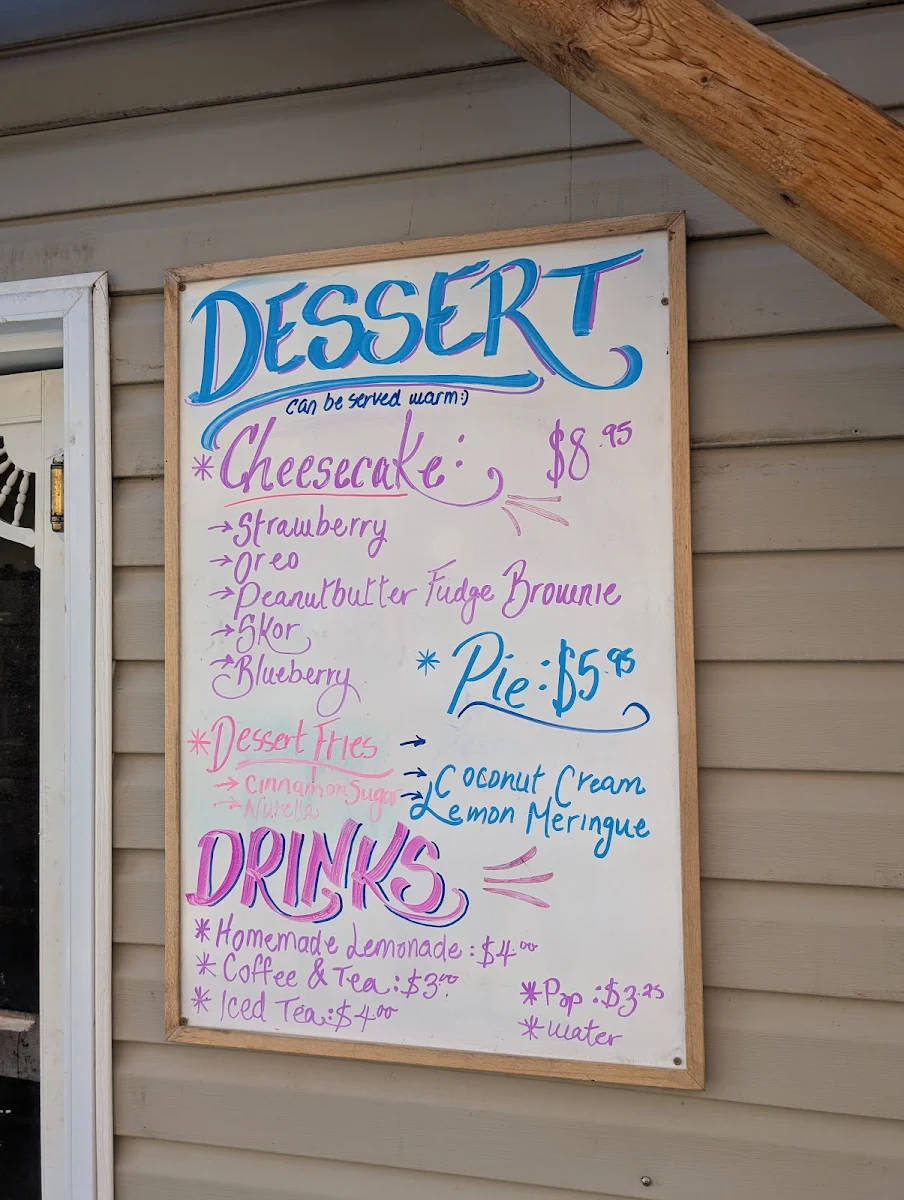 DESSERT
can be served warm:)
* Cheesecake: $8.95
→ Strawberry
→ Oreo
→ Peanutbutter Fudge Brownie
→ Skor
→ Blueberry
* Pie: $5.95
→
→ Coconut Cream
→ Lemon Meringue
* Dessert Fries
→ Cinnamon Sugar
→ Nutella
DRINKS
* Homemade Lemonade: $4.00
* Coffee & Tea: $3.00
* Iced Tea: $4.00
* Pop: $3.25
* water